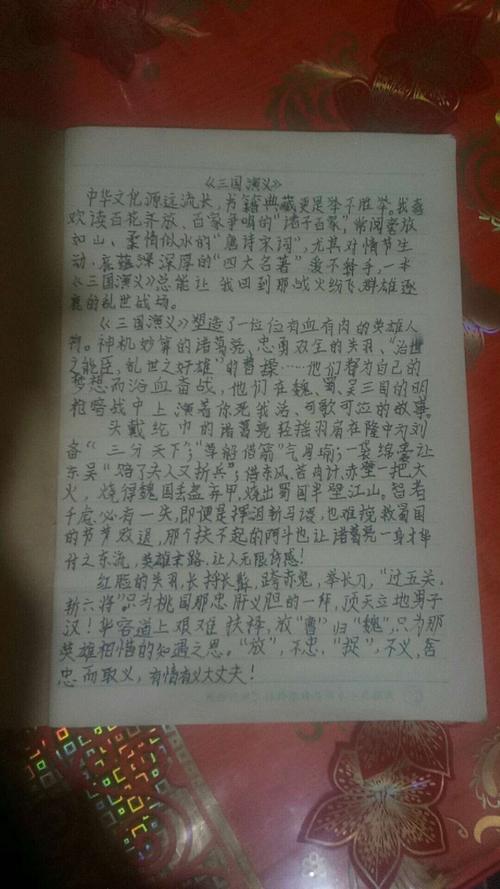 《三国演义》
中华文化源远流长，书籍典藏更是举不胜举。我喜
欢读百花齐放、百家争鸣的“诸子百家”，常阅豪放
如山、柔情似水的“唐诗宋词”，尤其对情节生
动、底蕴深深厚的“四大名著”爱不释手，一本
《三国演义》总能让我回到那战火纷飞，群雄逐
鹿的乱世战场。
《三国演义》塑造了一位位有血有肉的英雄人
物。神机妙算的诸葛亮、忠勇双全的关羽、“治世
之能臣，乱世之奸雄”的曹操……他们都为自己的
梦想而浴血奋战，他们在魏、蜀、吴三国的明
枪暗战中上演着你死我活、可歌可泣的故事。
头戴纶巾的诸葛亮轻摇羽扇在隆中为刘
备“三分天下”；“草船借箭”气周瑜；一袋锦囊让
东吴“陪了夫人又折兵”；借东风、苦肉计，赤壁一把大
火，烧得魏国丢盔弃甲，烧出蜀国半壁江山。智者
千虑必有一失，即便是挥泪斩马谡，也难挽救蜀国
的节节败退，那个扶不起的阿斗也让诸葛亮一身才华
付之东流，英雄末路，让人无限伤感！
红脸的关羽，长捋长髯，跨赤兔，举长刀，“过五关，
斩六将”只为桃园那忠肝义胆的一拜，顶天立地男子
汉！华容道上艰难抉择，放“曹”归“魏”，只为那
英雄相惜的知遇之恩。“放”，不忠，“捉”，不义，舍
忠而取义，有情有义大丈夫！